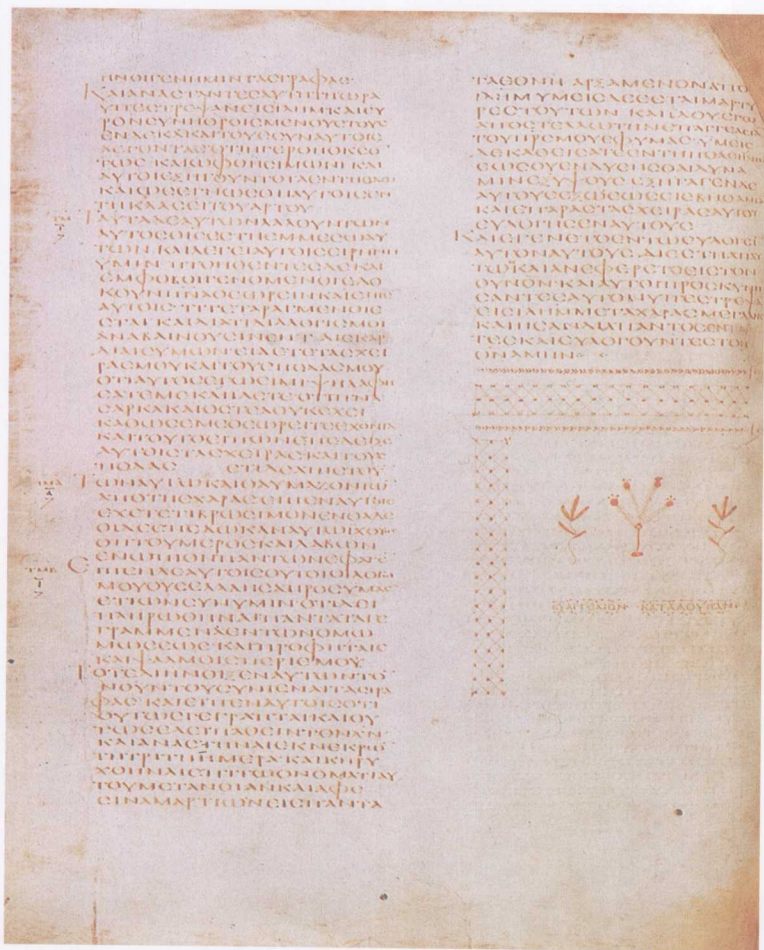 ΗΝΟΙΓΕΝΗΜΙΝΤΑϹΓΡΑΦΑϹ
ΚΑΙΑΝΑϹΤΑΝΤΕϹΑΥΤΗΤΗΩΡΑ
ΥΠΕϹΤΡΕΨΑΝΕΙϹΙΛΗΜΚΑΙΕΥ
ΡΟΝϹΥΝΗΘΡΟΙϹΜΕΝΟΥϹΤΟΥϹ
ΕΝΔΕΚΑΚΑΙΤΟΥϹϹΥΝΑΥΤΟΙϹ
ΛΕΓΟΝΤΑϹΟΤΙΗΓΕΡΘΗΟΚϹΟ
ΤΩϹ ΚΑΙΩΦΘΗϹΙΜΩΝΙ ΚΑΙ
ΑΥΤΟΙΕΞΗΓΟΥΝΤΟΤΑΕΝΤΗΟΔΩ
ΚΑΙΩϹΕΓΝΩϹΘΗΑΥΤΟΙϹΕΝ
ΤΗΚΛΑϹΕΙΤΟΥΑΡΤΟΥ
ΤΑΥΤΑΔΕΑΥΤΩΝΛΑΛΟΥΝΤΩΝ
ΑΥΤΟϹΟΙϹΕϹΤΗΕΜΜΕϹΩΑΥ
ΤΩΝ ΚΑΙΛΕΓΕΙΑΥΤΟΙϹΕΙΡΗΝΗ
ΥΜΙΝ ΠΤΟΗΘΕΝΤΕϹΔΕΚΑΙ
ΕΜΦΟΒΟΙΓΕΝΟΜΕΝΟΙΕΔΟ
ΚΟΥΝΠΝΑΘΕΩΡΕΙΝΚΑΙΕΙΠΕ
ΑΥΤΟΙϹ ΤΙΤΕΤΑΡΑΓΜΕΝΟΙΕ
ϹΤΑΙΚΑΙΔΙΑΤΙΔΙΑΛΟΓΙϹΜΟΙ
ΑΝΑΒΑΙΝΟΥϹΙΝΕΝΤΑΙϹΚΑΡ
ΔΙΑΙϹΥΜΩΝΕΙΔΕΤΕΤΑϹΧΕΙ
ΡΑϹΜΟΥΚΑΙΤΟΥϹΠΟΔΑϹΜΟΥ
ΟΤΙΑΥΤΟϹΕΓΩΕΙΜΙ ΨΗΛΑΦΗ
ϹΑΤΕΜΕΚΑΙΙΔΕΤΕΟΤΙΠΝΑ
ϹΑΡΚΑΚΑΙΟϹΤΕΑΟΥΚΕΧΕΙ
ΚΑΘΩϹΕΜΕΘΕΩΡΕΙΤΕΕΧΟΝΤΑ
ΚΑΙΤΟΥΤΟΕΙΠΩΝΕΠΕΔΕΙΞΕ
ΑΥΤΟΙϹΤΑϹΧΕΙΡΑϹΚΑΙΤΟΥϹ
ΠΟΔΑϹ ΕΤΙΔΕΑΠΙϹΤΟΥ
ΤΩΝΑΥΤΩΝΚΑΙΘΑΥΜΑΖΟΝΤΩ
ΑΠΟΤΗϹΧΑΡΑϹΕΙΠΕΝΑΥΤΟΙϹ
ΕΧΕΤΕΤΙΒΡΩϹΙΜΟΝΕΝΘΑΔΕ
ΟΙΔΕΕΠΕΔΩΚΑΝΑΥΤΩΙΧΘΥΟϹ
ΟΠΤΟΥΜΕΡΟϹΚΑΙΛΑΒΩΝ
ΕΝΩΠΙΟΝΠΑΝΤΩΝΕΦΑΓΕ
ΕΙΠΕΝΔΕΑΥΤΟΙϹΟΥΤΟΙΟΙΛΟΓΟΙ
ΜΟΥΟΥϹΕΛΑΛΗϹΑΠΡΟϹΥΜΑϹ
ΕΤΙΩΝϹΥΝΥΜΙΝΟΤΙΔΕΙ
ΠΛΗΡΩΘΗΝΑΙΠΑΝΤΑΤΑΓΕ
ΓΡΑΜΜΕΝΑΕΝΤΩΝΟΜΩ
ΜΩϹΕΩϹΚΑΙΠΡΟΦΗΤΑΙϹ
ΚΑΙΨΑΛΜΟΙϹΠΕΡΙΕΜΟΥ
ΤΟΤΕΔΙΗΝΟΙΞΕΝΑΥΤΩΝΤΟ
ΝΟΥΝΤΟΥϹΥΝΙΕΝΑΙΤΑϹΓΡΑ
ΦΑϹ ΚΑΙΕΙΠΕΝΑΥΤΟΙϹΟΤΙ
ΟΥΤΩϹΓΕΓΡΑΠΤΑΙΚΑΙΟΥ
ΤΩϹΕΔΕΙΠΑΘΕΙΝΤΟΝΧΝ
ΚΑΙΑΝΑϹΤΗΝΑΙΕΚΝΕΚΡΩ
ΤΗΤΡΙΤΗΗΜΕΡΑ ΚΑΙΚΗΡΥ
ΧΘΗΝΑΙΕΠΙΤΩΟΝΟΜΑΤΙΑΥ
ΤΟΥΜΕΤΑΝΟΙΑΝΚΑΙΑΦΕ
ϹΙΝΑΜΑΡΤΙΩΝΕΙϹΠΑΝΤΑ
ΤΑΕΘΝΗ ΑΡΞΑΜΕΝΟΝΑΠΟ
ΙΛΗΜ ΥΜΕΙϹΔΕΕϹΤΑΙΜΑΡΤΥ
ΡΕϹΤΟΥΤΩΝ ΚΑΙΙΔΟΥΕΓΩ
ΑΠΟϹΤΕΛΛΩΤΗΝΕΠΑΓΓΕΛΙΑ
ΤΟΥΠΡϹΜΟΥΕΦΥΜΑϹ ΥΜΕΙϹ
ΔΕΚΑΘΙϹΑΤΕΕΝΤΗΠΟΛΕΙΙΛΗΜ
ΕΩϹΟΥΕΝΔΥϹΗϹΘΕΔΥΝΑ
ΜΙΝΕΞΥΨΟΥϹ ΕΞΗΓΑΓΕΝΔΕ
ΑΥΤΟΥϹΕΞΩΕΩϹΕΙϹΒΗΘΑΝΙΑ
ΚΑΙΕΠΑΡΑϹΤΑϹΧΕΙΡΑϹΑΥΤΟΥ
ΕΥΛΟΓΗϹΕΝΑΥΤΟΥϹ
ΚΑΙΕΓΕΝΕΤΟΕΝΤΩΕΥΛΟΓΕΙ
ΑΥΤΟΝΑΥΤΟΥϹ ΔΙΕϹΤΗΑΠΑΥ
ΤΩΚΑΙΑΝΕΦΕΡΕΤΟΕΙϹΤΟΝ
ΟΥΝΟΝ ΚΑΙΑΥΤΟΙΠΡΟϹΚΥΝΗ
ϹΑΝΤΕϹΑΥΤΟΝΥΠΕϹΤΡΕΨΑ
ΕΙϹΙΛΗΜΜΕΤΑΧΑΡΑϹΜΕΓΑΛΗϹ
ΚΑΙΗϹΑΝΔΙΑΠΑΝΤΟϹΕΝΤΩ
ΤΕϹΚΑΙΕΥΛΟΓΟΥΝΤΕϹΤΟ
ΘΝΑΜΗΝ
ΕΥΑΓΓΕΛΙΟΝ ΚΑΤΑΛΟΥΚΑΝ